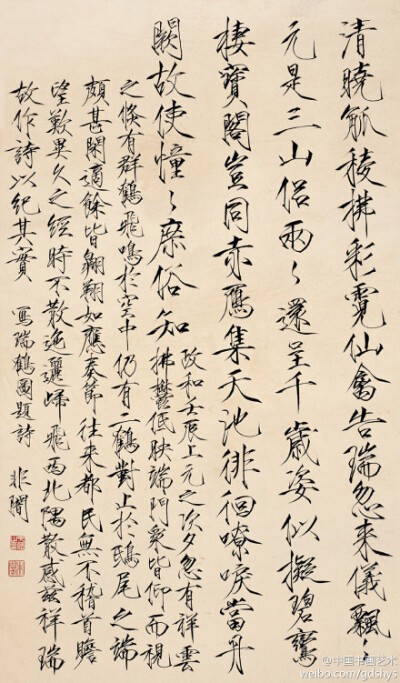 清曉觚稜拂彩霓仙禽告瑞忽來儀飄〻
元是三山侶兩〻還呈千歲姿似擬碧鸞
棲寶閣豈同赤鴈集天池徘徊嘹唳當丹
闕故使憧〻庶俗知
政和壬辰上元之次夕忽有祥雲
拂鬱低映端門衆皆仰而視
之倏有群鶴飛鳴於空中仍有二鶴對止於鴟尾之端
頗甚閑適餘皆翱翔如應奏節往來都民無不稽首瞻
望歎異久之經時不散迤邐歸飛西北隅散感茲祥瑞
故作詩以紀其實 寫瑞鶴圖題詩 非闇
@中国书画艺术
weibo.com/gdshys